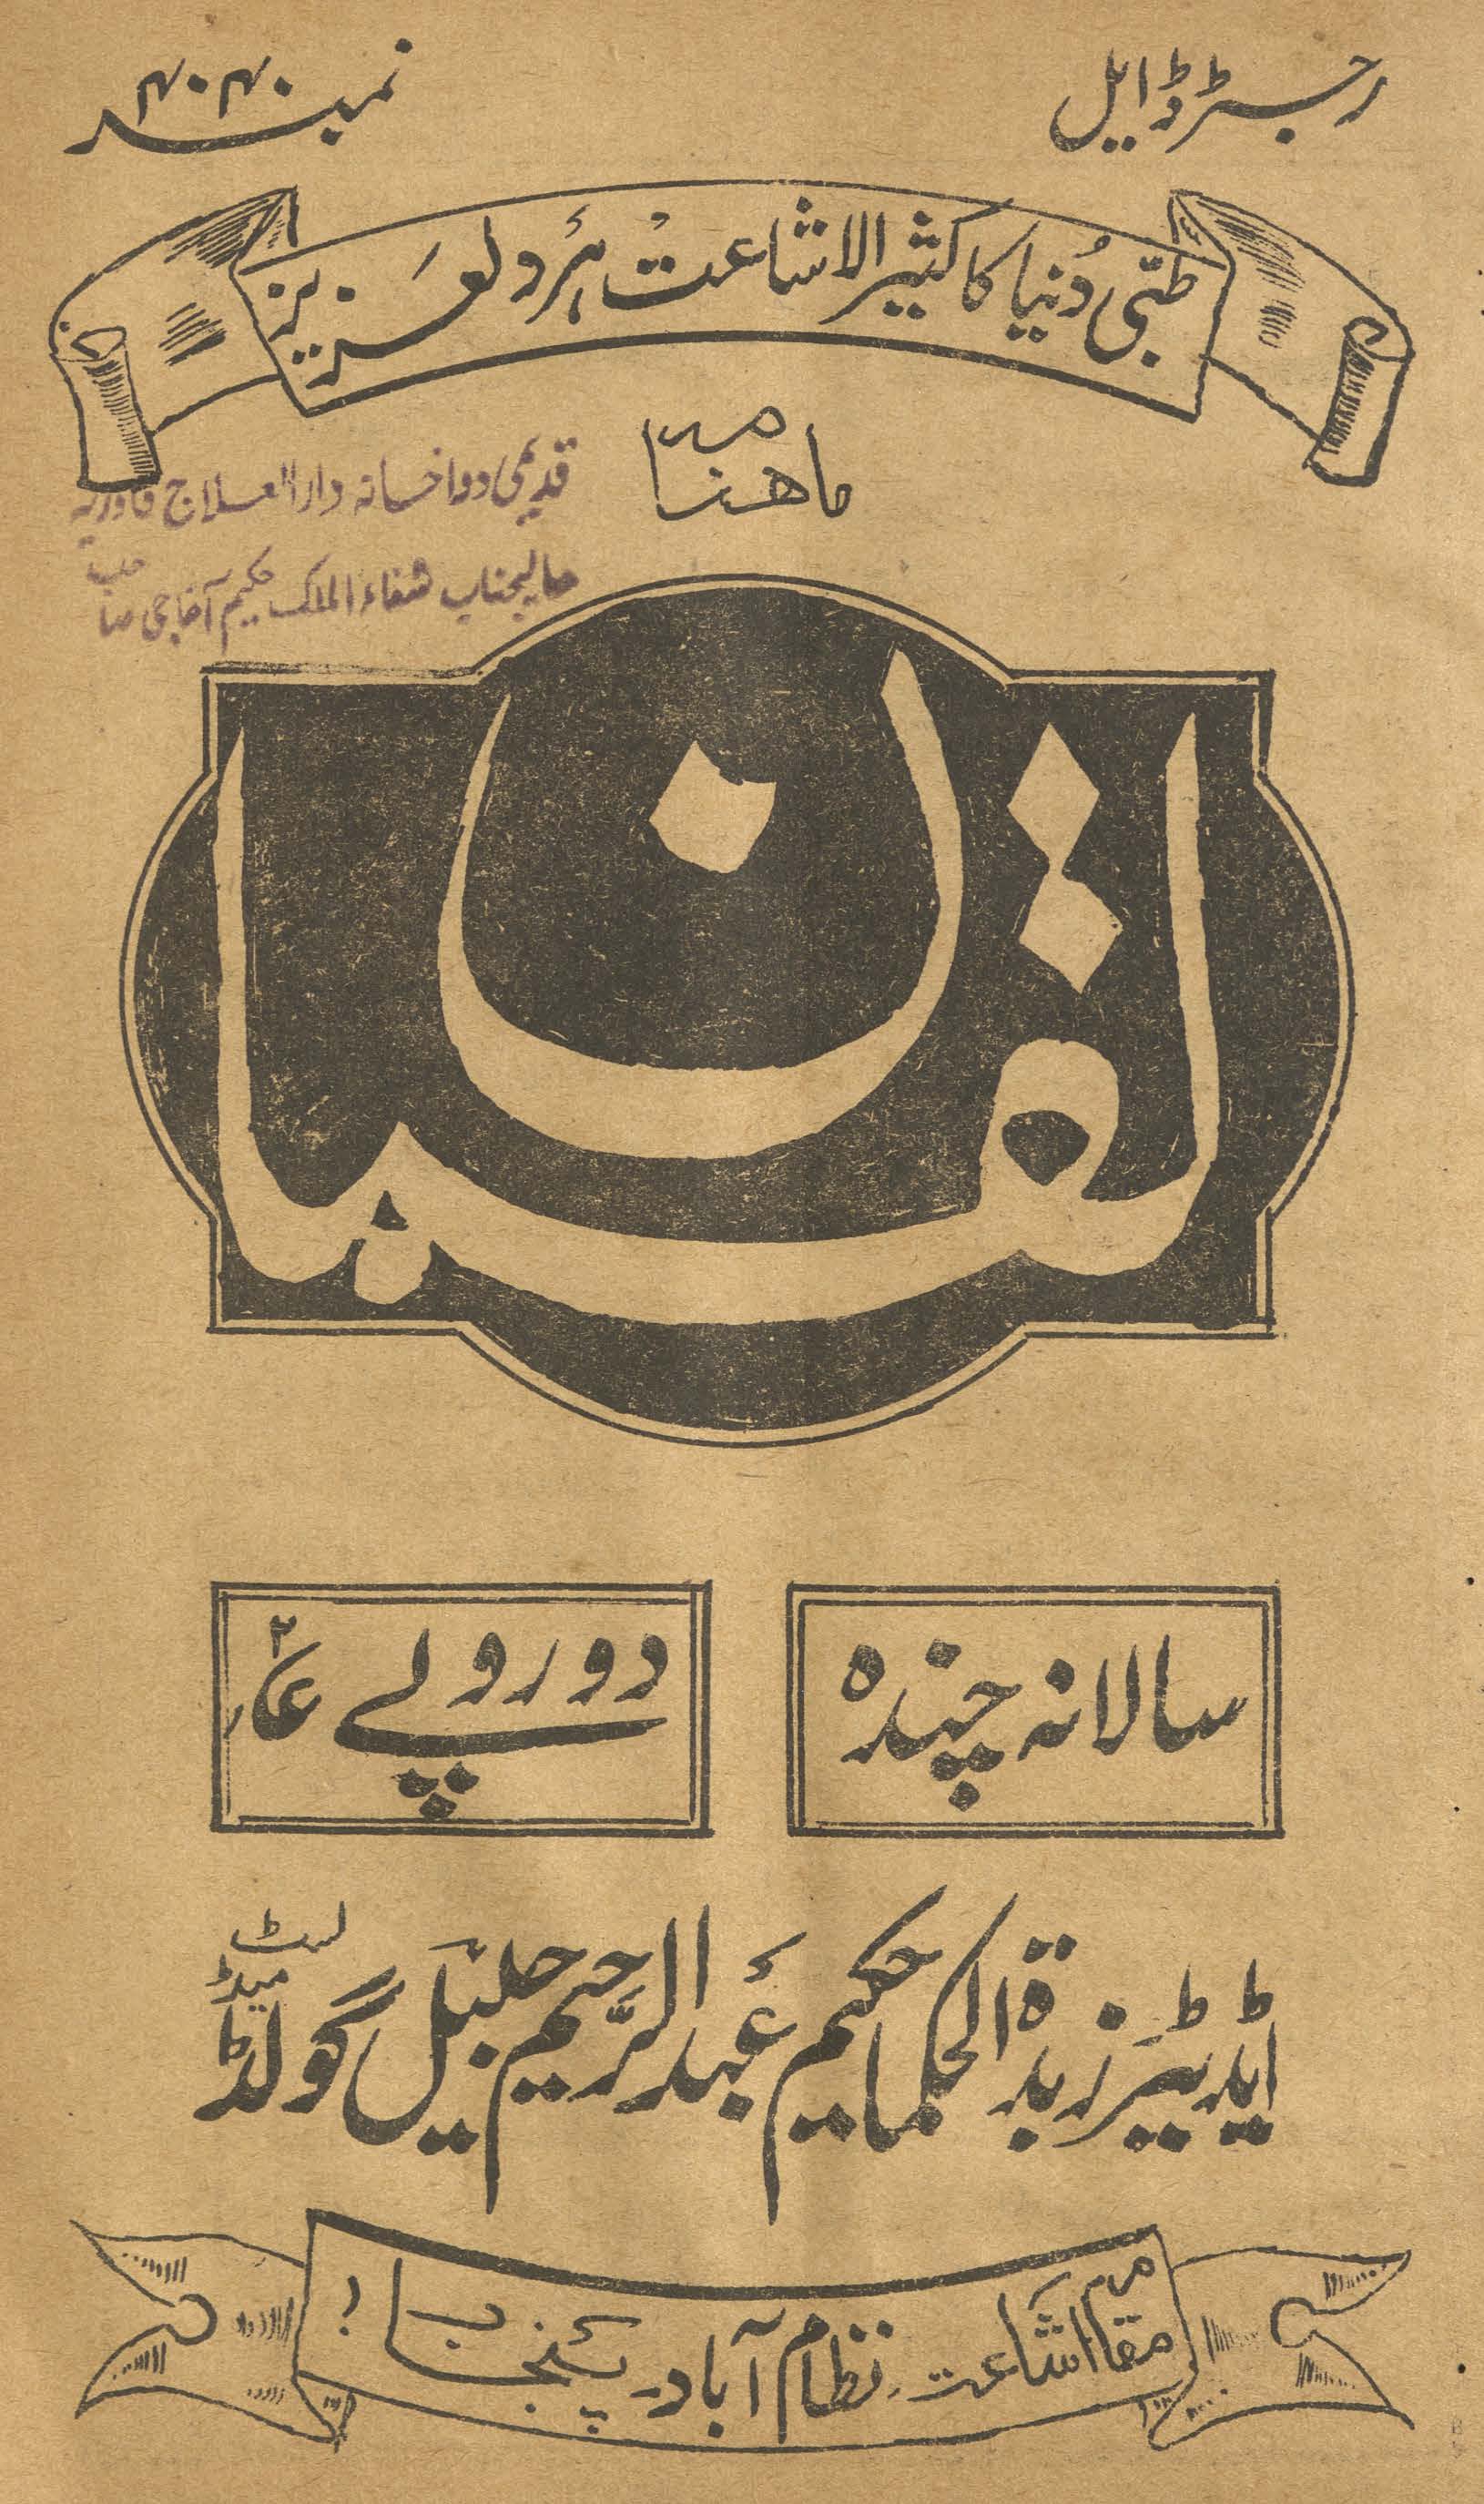 رجسٹرڈ ایل نمبر ۴۰۴۰
طبّی دُنیا کا کثیر الاشاعت ہر دلعزیز
ماہنامہ
قدیمی دواخانہ دارالعلاج قادریہ
عالیجناب شفاء الملک حکیم آغا جی صاحب
لقمان
سالانہ چندہ
دو روپے
ایڈیٹر زبدۃ الحکما حکیم عَبدالرَّحیم جلیل گولڈ میڈلسٹ
مقام اشاعت نظام آباد پنجاب